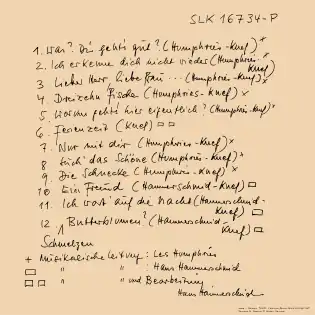 SLK 16734-P
1. Was? Dir geht's gut? (Humphries-Knef) x
2. Ich erkenne dich nicht wieder (Humphries-Knef)
3. Lieber Herr, liebe Frau ... (Humphries-Knef) x
4. Dreizehn Fische (Humphries-Knef) x
5. Worum geht's hier eigentlich? (Humphries-Knef) x
6. Ferienzeit (Knef) □□
7. Nur mit dir (Humphries-Knef) x
8 Such' das Schöne (Humphries-Knef) x
9. Die Schnecke (Humphries-Knef) x
10 Ein Freund (Hammerschmid-Knef) □
11. Ich wart' auf die Nacht (Hammerschmid-Knef) □
12. Butterblumen? (Hammerschmid-Knef) □
Schmelzen
+ Musikalische Leitung: Les Humphries
□ " " : Hans Hammerschmid
□□ " " und Bearbeitung
Hans Hammerschmid